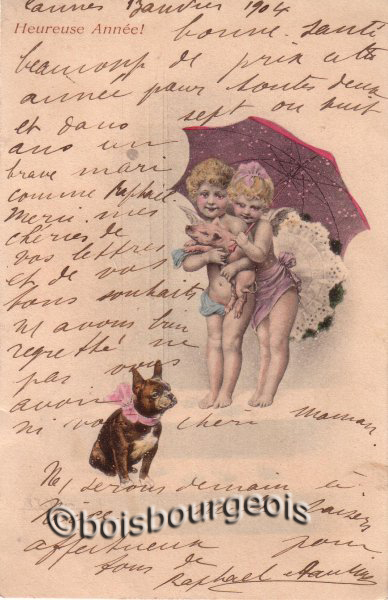 Cannes 3 Janvier 1904
Heureuse Année!
bonne santé
beaucoup de prix cette
année pour toutes deux
et dans sept ou huit
ans un
brave mari
comme Raphaël
Merci mes
chéries de
vos lettres
et de vos
bons souhaits
ns avons bien
regretté ne
pas vous
avoir
ni vo chère maman.
Ns serons demain à
Nice baisers
affectueux pour
tous de
Raphaël
©boisbourgeois